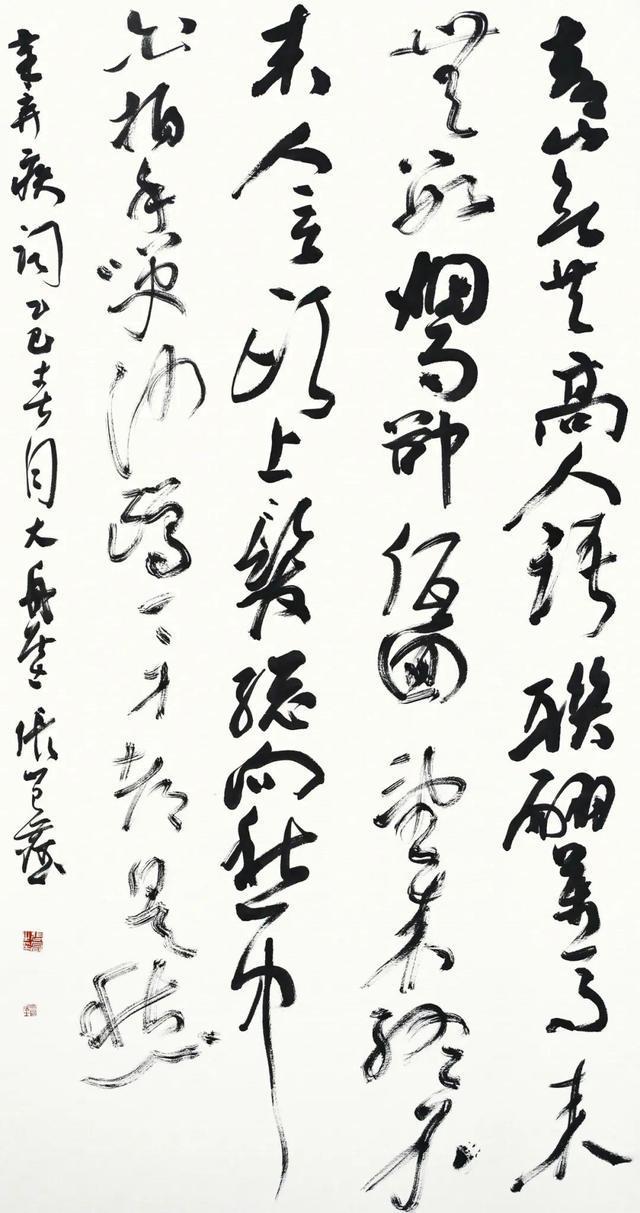 青山欲共高人語聯翩萬馬来
無數烟雨卻低回望来終不
来人言頭上髮總向愁中
白拍手笑沙鷗一身都是愁
辛弃疾詞乙巳春月大舟堂張